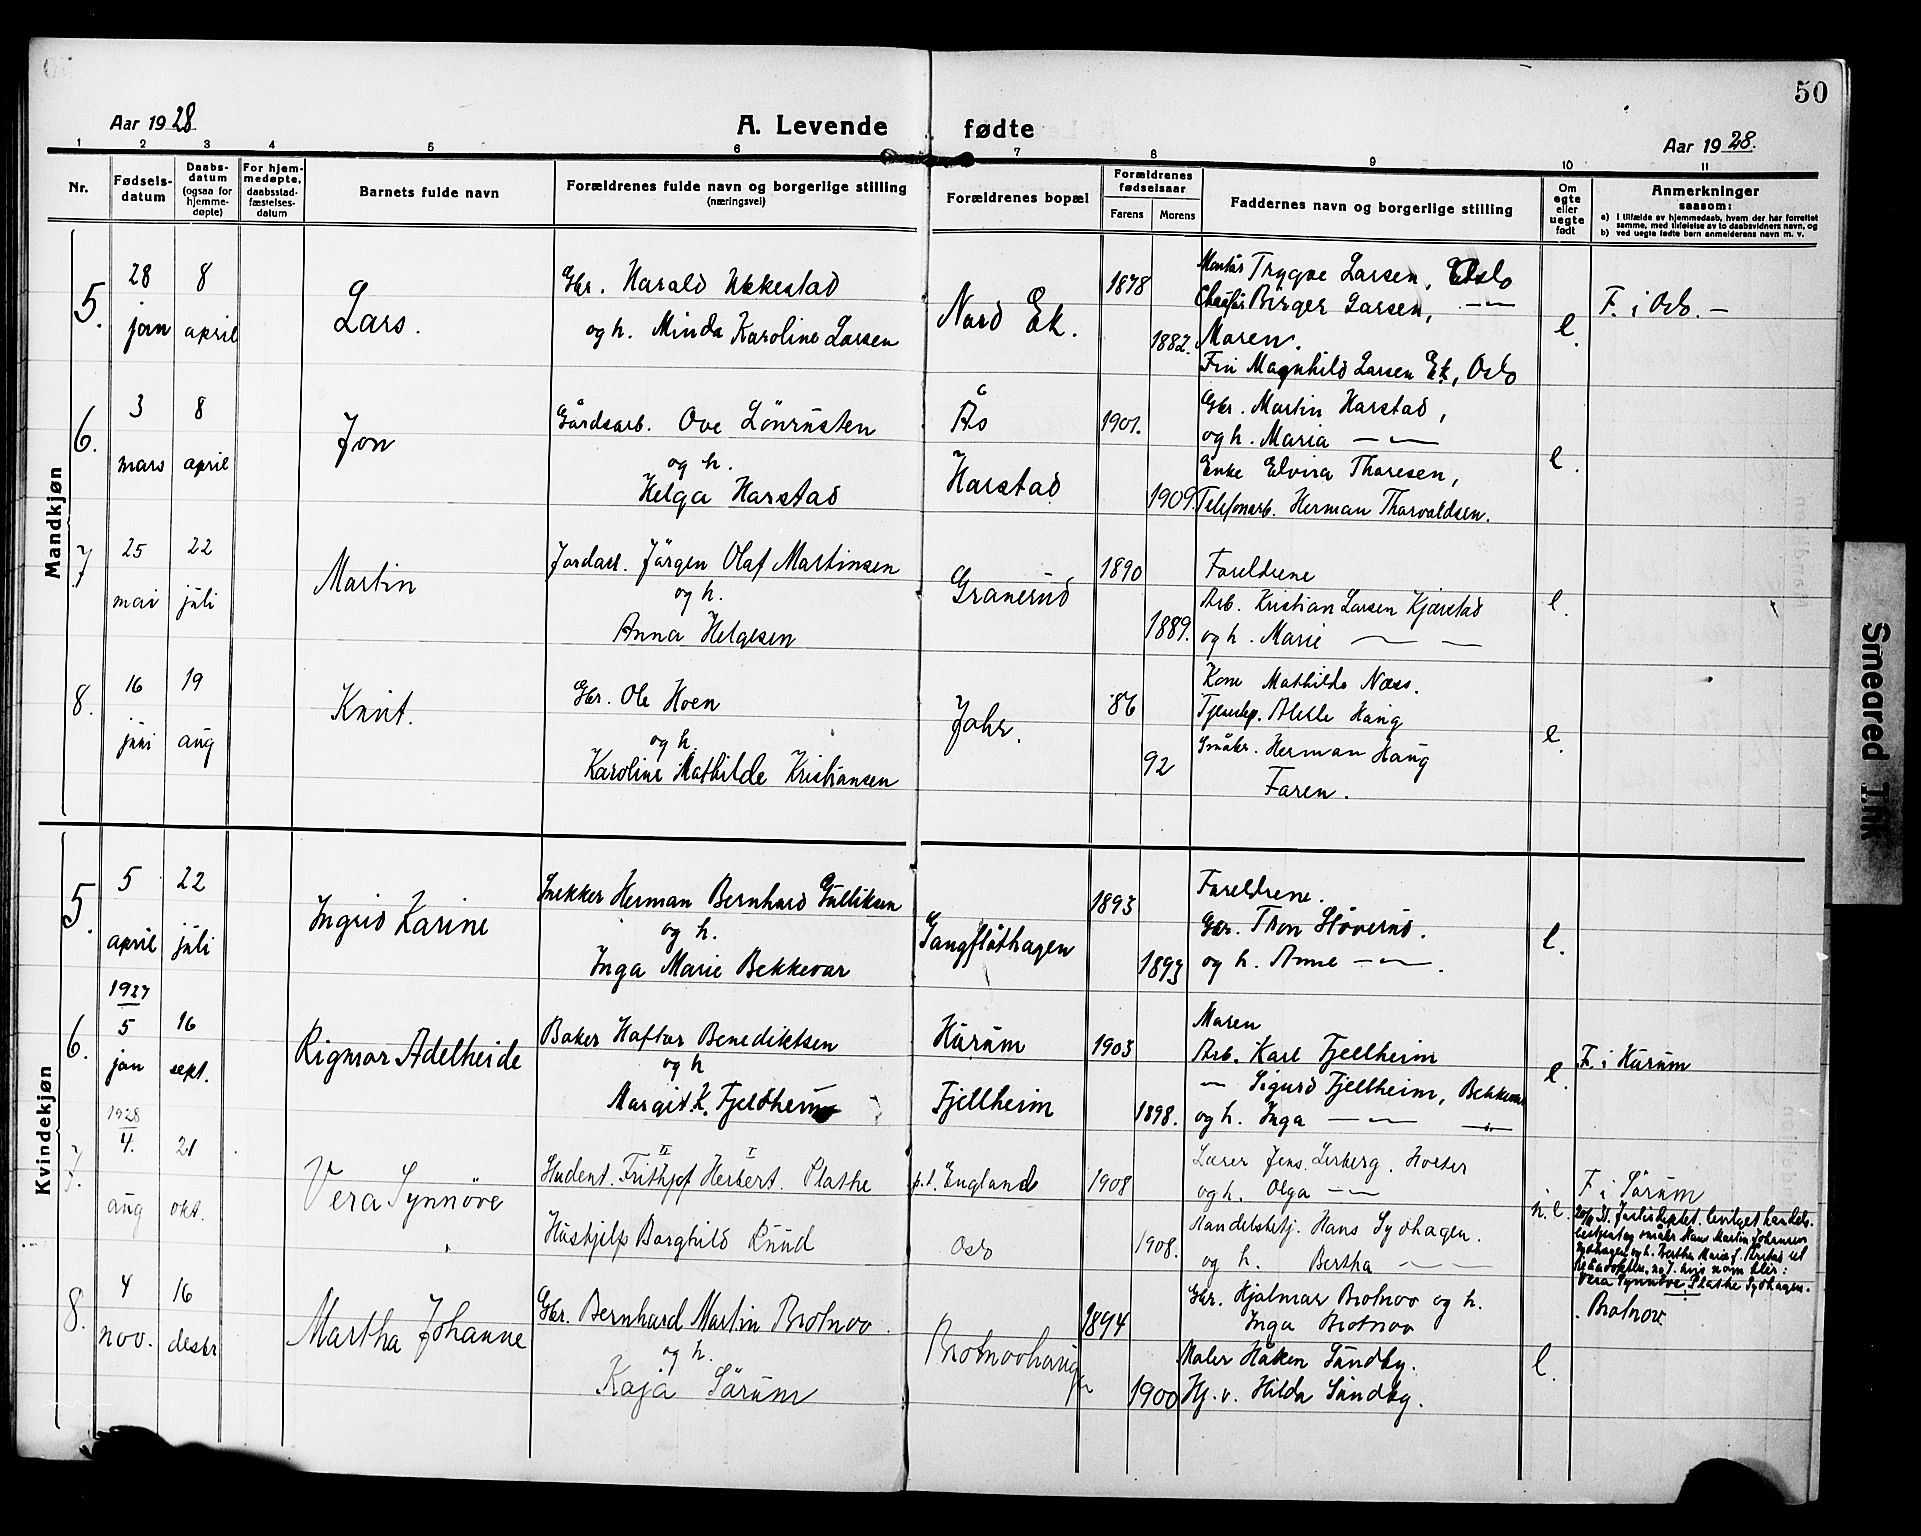 50
Aar 1928
A. Levende fødte
Aar 1928.
1 2 3 4 5 6 7 8 9 10 11
Nr.
Fødsels-
datum
Daabs-
datum
(ogsaa for
hjemme-
døpte)
For hjem-
medøpte,
daabsstad-
fæstelses-
datum
Barnets fulde navn
Forældrenes fulde navn og borgerlige stilling
(næringsvei)
Forældrenes bopæl
Forældrenes
fødselsaar
Farens Morens
Faddernes navn og borgerlige stilling
Om
egte
eller
uegte
født
Anmerkninger
saasom:
a) I tilfælde av hjemmedaab, hvem der har forrettet
samme, med tilføielse av to daabsvidners navn, og
b) ved uegte fødte barn anmelderens navn m. v.
Mandkjøn
5.
28
jan
8
april
Lars.
Gbr. Harald
og h. Minda Karoline Larsen
Nord Ek.
1878
1882.
Trygve Larsen, Oslo
Birger Larsen, —
Moren.
Magnhild Larsen Ek, Oslo
e.
F. i Oslo. —
6.
3
mars
8
april
Jon
Gårdsarb. Ove Lönrusten
og h.
Helga Harstad
Ås
Harstad
1901.
1909.
Gbr. Martin Harstad,
og h. Maria — —
Enke Elvira Thoresen,
Telefonarb. Herman Thorvaldsen.
e.
7
25
mai
22
juli
Martin
Jordarb. Jörgen Olaf Martinsen
og h.
Anna Helgesen
Granerud
1890
1889.
Foreldrene
Arb. Kristian Larsen Kjærstad
og h. Marie — —
e.
8.
16
juni
19
aug
Knut.
Gbr. Ole Hoen
og h.
Karoline Mathilde Kristiansen
Johr.
86
92
Kone Mathilde Næss.
Haug
Småbr. Herman Haug
Faren.
e.
Kvindekjøn
5.
5
april
22
juli
Ingrid Karine
Snekker Herman Bernhard Gulliksen
og h.
Inga Marie Bekkevar
Gangfløthagen
1893
1893
Foreldrene.
Gbr. Thon Støverud.
og h. Anne — —.
e.
6.
1927
5
jan
16
sept.
Rigmor Adelheide
Baker Haftor Benediktsen
og h
Margit K. Fjeldheim
Hurum
Fjellheim
1903
1898.
Moren
Arb. Karl Fjellheim
— Sigurd Fjellheim,
og h. Inga — —
e.
F. i Hurum
7.
1928
4.
aug
21
okt.
Vera Synnöve
Student. Frithjof Herbert. Plathe
Hushjelp Borghild Ruud
p.t. England
Oslo
1908
1908.
Lærer Jens Lerberg. Holter
og h. Olga — —
Handelsbetj. Hans Sydhagen.
og h. Bertha — —
u.e.
F i Sørum
Vera Synnöve Plathe Sydhagen.
8.
4
nov.
16
desbr
Martha Johanne
Gbr. Bernhard Martin Brotnov.
og h.
Kaja Sörum
1894
1900
Gbr. Hjalmar Brotnov og h.
Inga Brotnov
Maler Håken Sundby.
Hj. v. Hilda Sundby.
e.
Brotnov.
Smeared Ink